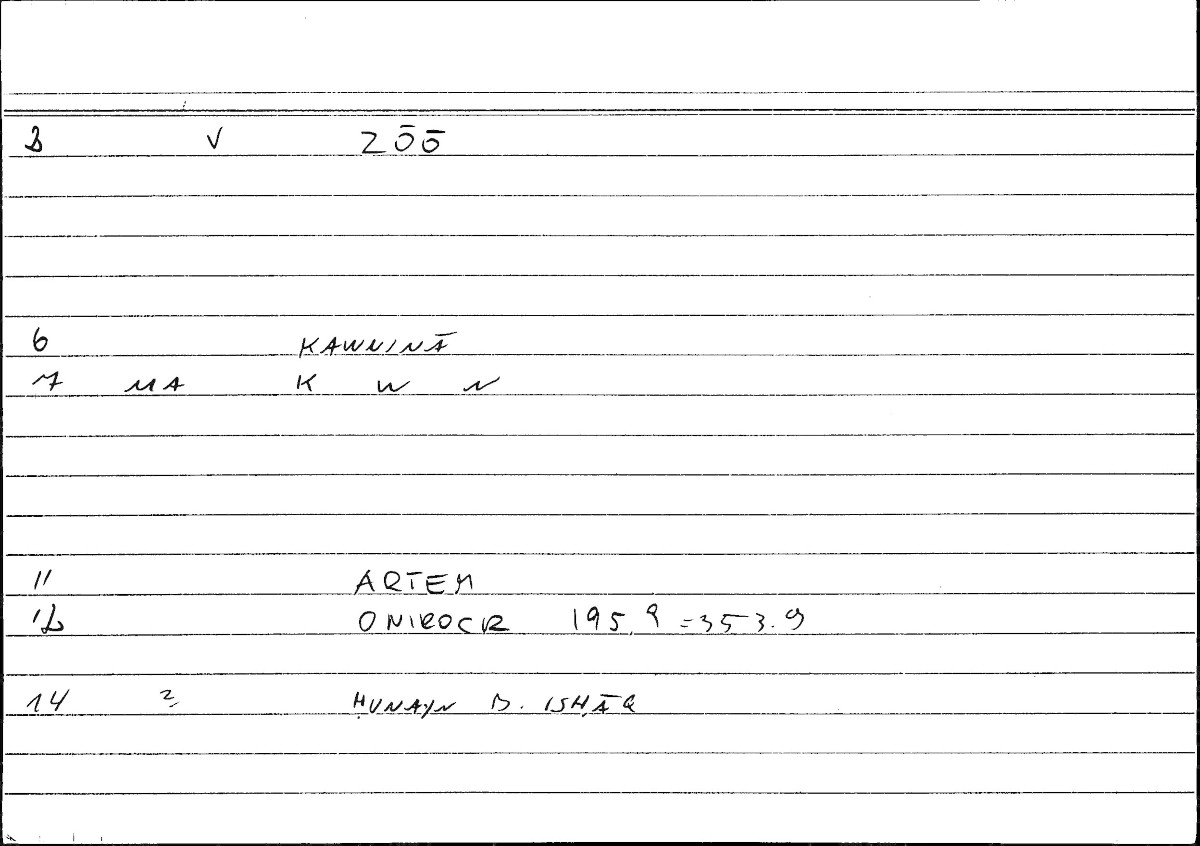 3 V ZŌŌ
6 KAWNINĀ
7 MA K W N
11 ARTEM
12 ONIROCR 195.9 = 353.9
14 2 ḤUNAYN B. ISḤĀQ